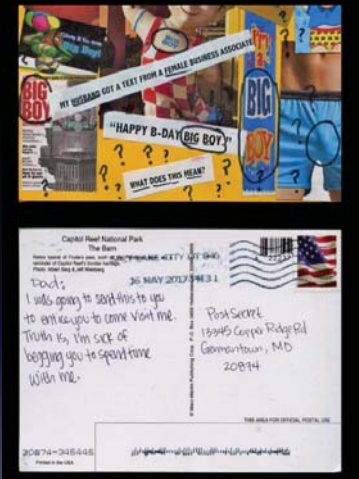 BIG
BOY
MY HUSBAND GOT A TEXT FROM A FEMALE BUSINESS ASSOCIATE
"HAPPY B-DAY BIG BOY!"
WHAT DOES THIS MEAN?
BIG
BOY
Capitol Reef National Park
The Barn
Photo: Albert Berg & Jeff Weisberg
CITY UT 840
16 MAY 2017 PM 3 L
Dad:
I was going to send this to you
to entice you to come visit me.
Truth is, I'm sick of
begging you to spend time
with me.
PostSecret
13345 Copper Ridge Rd
Germantown, MD
20874
THIS AREA FOR OFFICIAL POSTAL USE
20874-346446
Printed in the USA